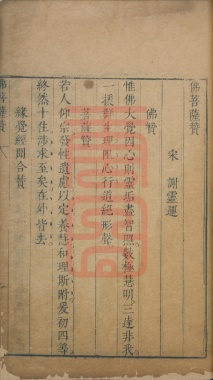 佛菩薩贊
宋 謝靈運
佛贊
惟佛大覺因心則靈垢盡智照數極慧明三達非我
一援群生理阻心行道絕形聲
菩薩贊
若人仰宗發性遺慮以定養慧和理斯附爰初四等
終然十住涉求至矣在外皆去
緣覺聲聞合贊
佛菩薩贊